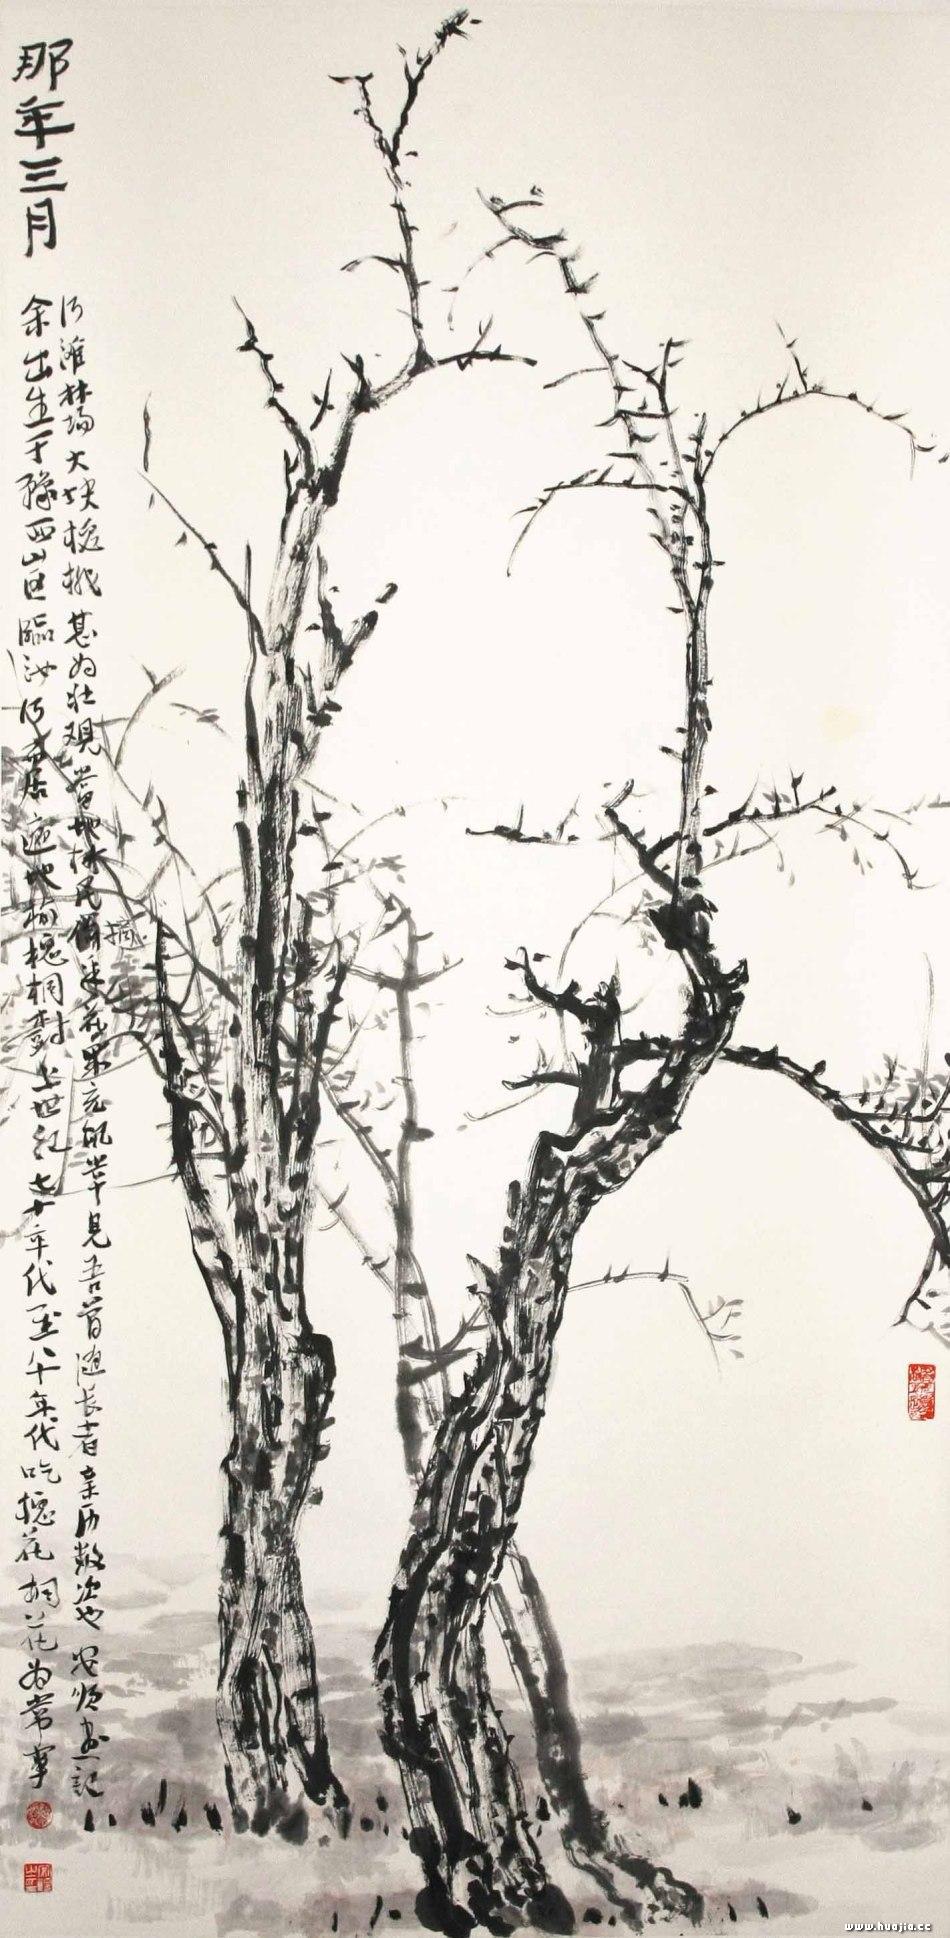 那年三月
余出生于豫西山区臨汝河而居遍地榆槐桐树上世纪七十年代至八十年代吃槐花桐花为常事
河滩林场大块槐桃甚为壮观當地村民采摘花果充飢常见吾曾随长者亲历数次也 安顺画記
www.huajia.cc